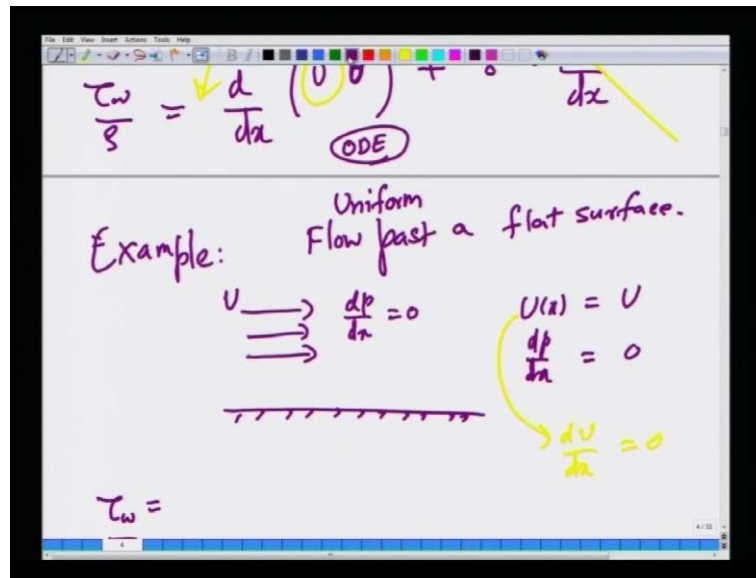 File Edit View Insert Actions Tools Help
τw/ρ = d/dx (U θ) + dx
ODE
Uniform
Example: Flow past a flat surface.
U dp/dx = 0 U(x) = U
dp/dx = 0
dU/dx = 0
τw =
4/33
4